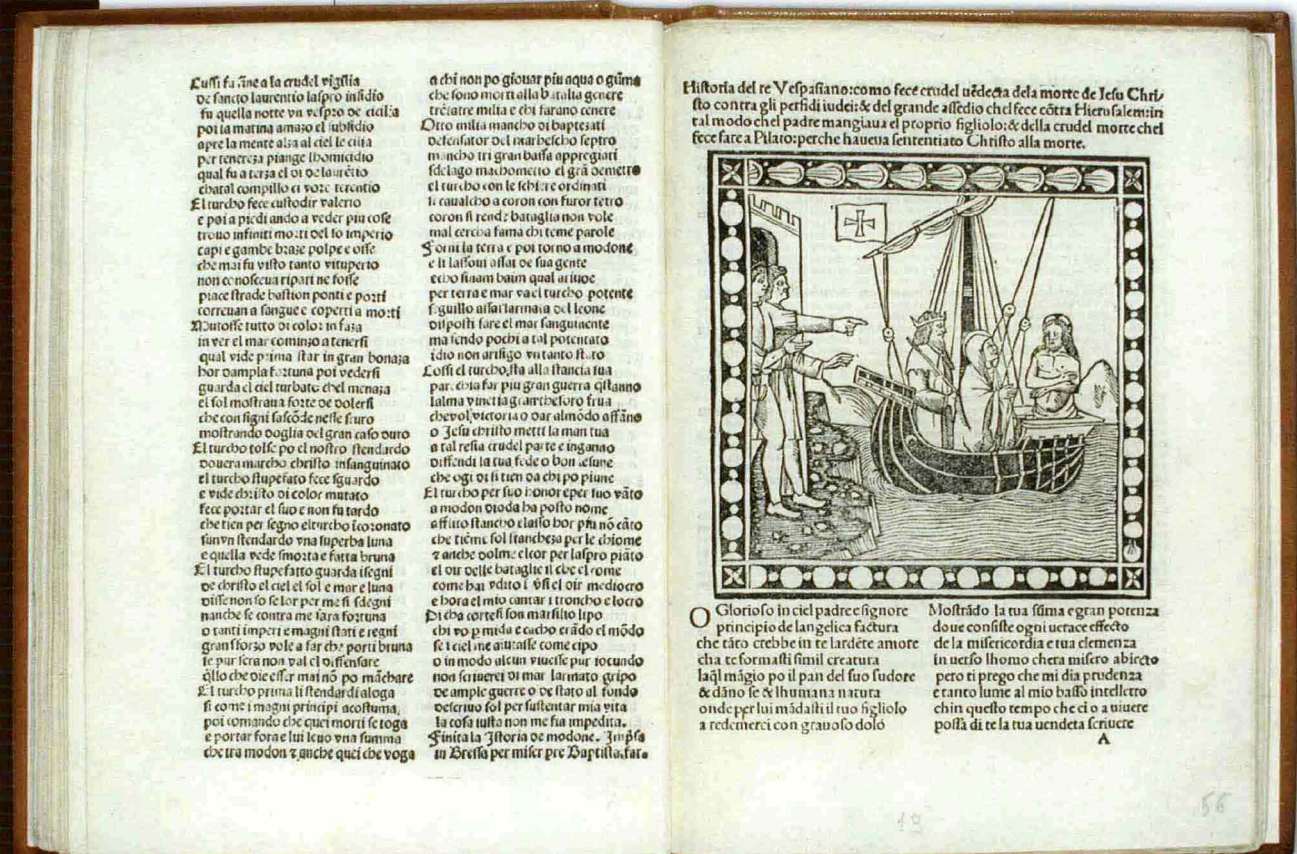 Cussi fu fine a la crudel vigilia
de sancto laurentio laspro insidio
fu quella notte vn vespro de cicilia
poi la matina amazo el subsidio
apre la mente alza al ciel le ciita
per tenereza piange lhomicidio
qual fu a terza el di de laurētio
El turcho fece custodir valerio
e poi a piedi ando a veder piu cose
trouo infiniti morti del so imperio
capi e gambe braze polpe e osse
che mai fu visto tanto vituperio
non conosceua ripari ne fosse
piace strade bastion ponti e porti
correuan a sangue e coperti a morti
Mutosse tutto di color in faza
in ver el mar cominzo a tenersi
qual vide prima star in gran bonaza
hor oampla fortuna poi vedersi
guarda el ciel turbato chel menaza
el sol mostraua forte de dolersi
che con signi sascōde nesse scuro
mostrando doglia del gran caso duro
El turcho tolse po el nostro stendardo
douera marcho christo insanguinato
el turcho stupefato fece sguardo
e vide christo di color mutato
fece portar el suo e non fu tardo
che tien per segno el turcho īcoronato
sun vn stendardo vna superba luna
e quella vede smorta e fatta bruna
El turcho stupefatto guarda i segni
de christo el ciel el sol e mar e luna
disse non so se lor per me si sdegni
nanche se contra me sara fortuna
o tanti imperi e magni stati e regni
gran sforzo vole a far che porti bruna
se pur sera non val el diffensare
q̄llo che die esser mai nō po māchare
El turcho prima li stendardi aloga
si come i magni principi acostuma
poi comando che quei morti se toga
e portar fora e lui leuo vna summa
che tra modon ⁊ anche quei che voga
a chi non po giouar piu aqua o gūma
che sono morti alla batalia genere
trētatre milia e chi farano cenere
Otto milia mancho di baptezati
defensator del marbescho septro
mancho tri gran bassa appregiati
sdelago machometto el grā demetro
el turcho con le schiere ordinati
li caualcho a coron con furor tetro
coron si rende bataglia non vole
mal cercha fama chi teme parole
Forni la terra e poi torno a modone
e li lassoui assai de sua gente
per terra e mar va el turcho potente
seguillo assai larmata del leone
disposti fare el mar sanguinente
ma sendo pochi a tal potentato
idio non arisigo vn tanto stato
Cossi el turcho sta alla stancia sua
par chia far piu gran guerra q̄stanno
lalma vinetia gran thesoro frua
che vol victoria o dar almōdo affāno
o Jesu christo metti la man tua
a tal resia crudel parte e inganno
diffendi la tua fede o bon iesune
che ogi di si tien da chi po piune
El turcho per suo honor e per suo vāto
a modon dioda ha posto nome
affitto stancho e lasso hor piu nō cāto
che tiēmi sol stancheza per le chiome
⁊ anche dolme el cor per laspro piāto
el dir delle bataglie il che el come
come hai vdito i vsi el dir mediocro
e hora el mio cantar i troncho e locro
Di cha cortesi son marsilio lipo
chi vo p̱ mida e cacho erādo el mōdo
se i ciel me aiutasse come cipo
o in modo alcun viuesse pur iocundo
non scriuerei di mar larmato gripo
de ample guerre o de stato al fondo
descriuo sol per sustentar mia vita
la cosa iusta non me fia impedita.
Finita la Istoria de modone. Imp̱sa
in Bressa per miser pre Baptista.far.
Historia del re Vespasiano:como fece crudel uēdecta dela morte de Jesu Chri-
sto contra gli perfidi iudei:& del grande assedio chel fece cōtra Hierusalem:in
tal modo chel padre mangiaua el proprio figliolo:& della crudel morte chel
fece fare a Pilato:perche haueua sententiato Christo alla morte.
O Glorioso in ciel padre e signore
principio de langelica factura
che tāto crebbe in te lardēte amore
cha te formasti simil creatura
laq̄l māgio poi il pan del suo sudore
& dāno se & lhumana natura
onde per lui mādasti il tuo figliolo
a redemerci con grauoso dolo
Mostrādo la tua sūma e gran potenza
doue consiste ogni uerace effecto
de la misericordia e tua clemenza
in uerso lhomo chera misero abiecto
pero ti prego che mi dia prudenza
e tanto lume al mio basso intelletto
chin questo tempo che ci o a uiuere
possa di te la tua uendeta scriuere
A
19
56